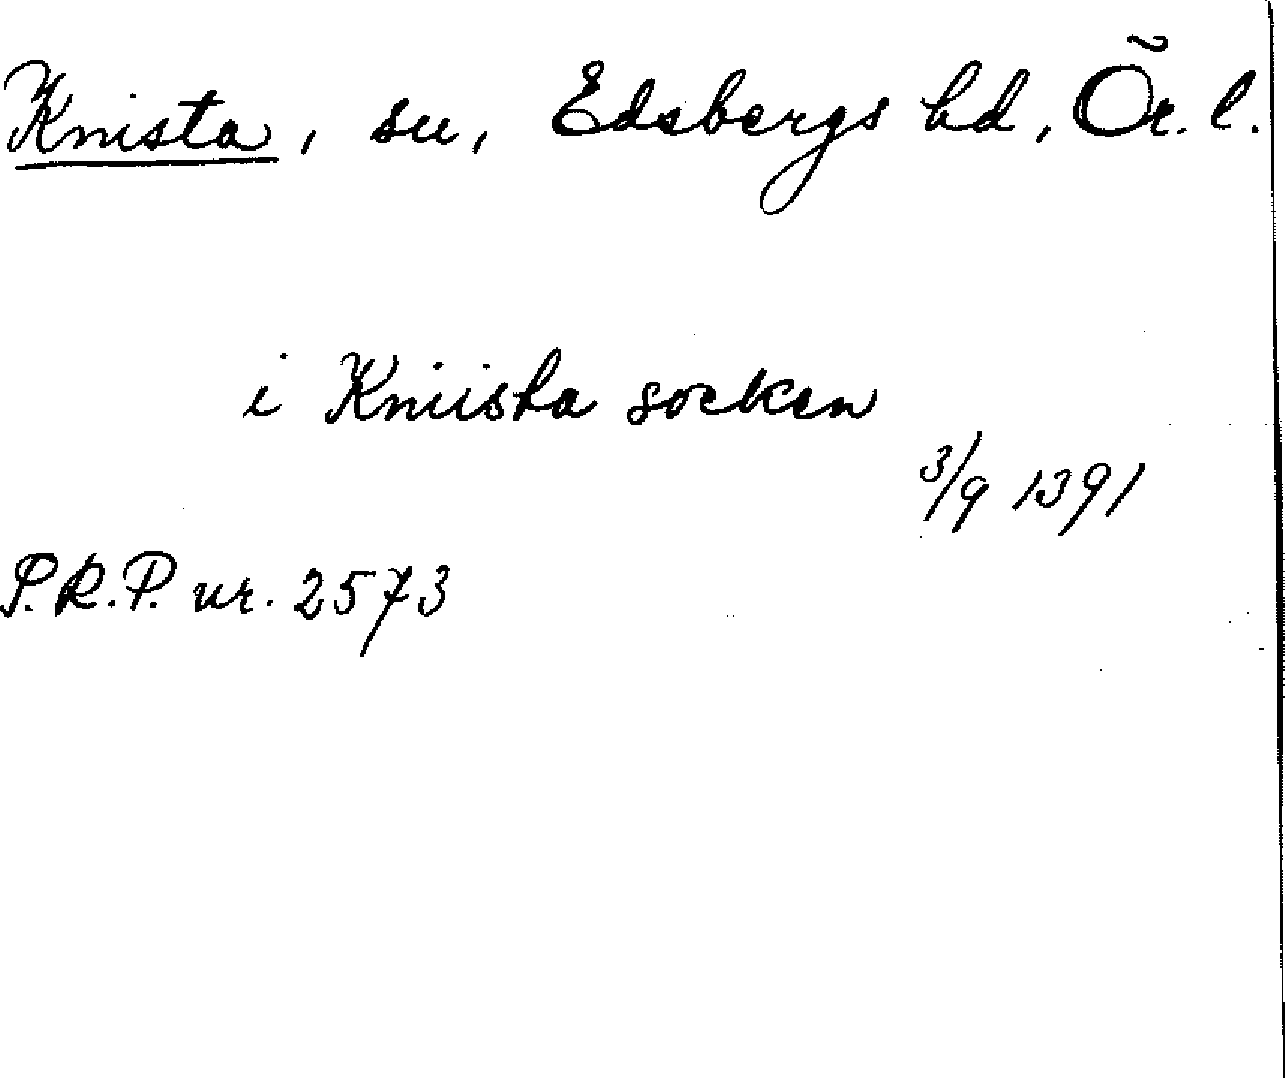 Knista, sn, Edsbergs hd, Ör. l.
i Kniista socken
3/9 1391
P.R.P. nr. 2573